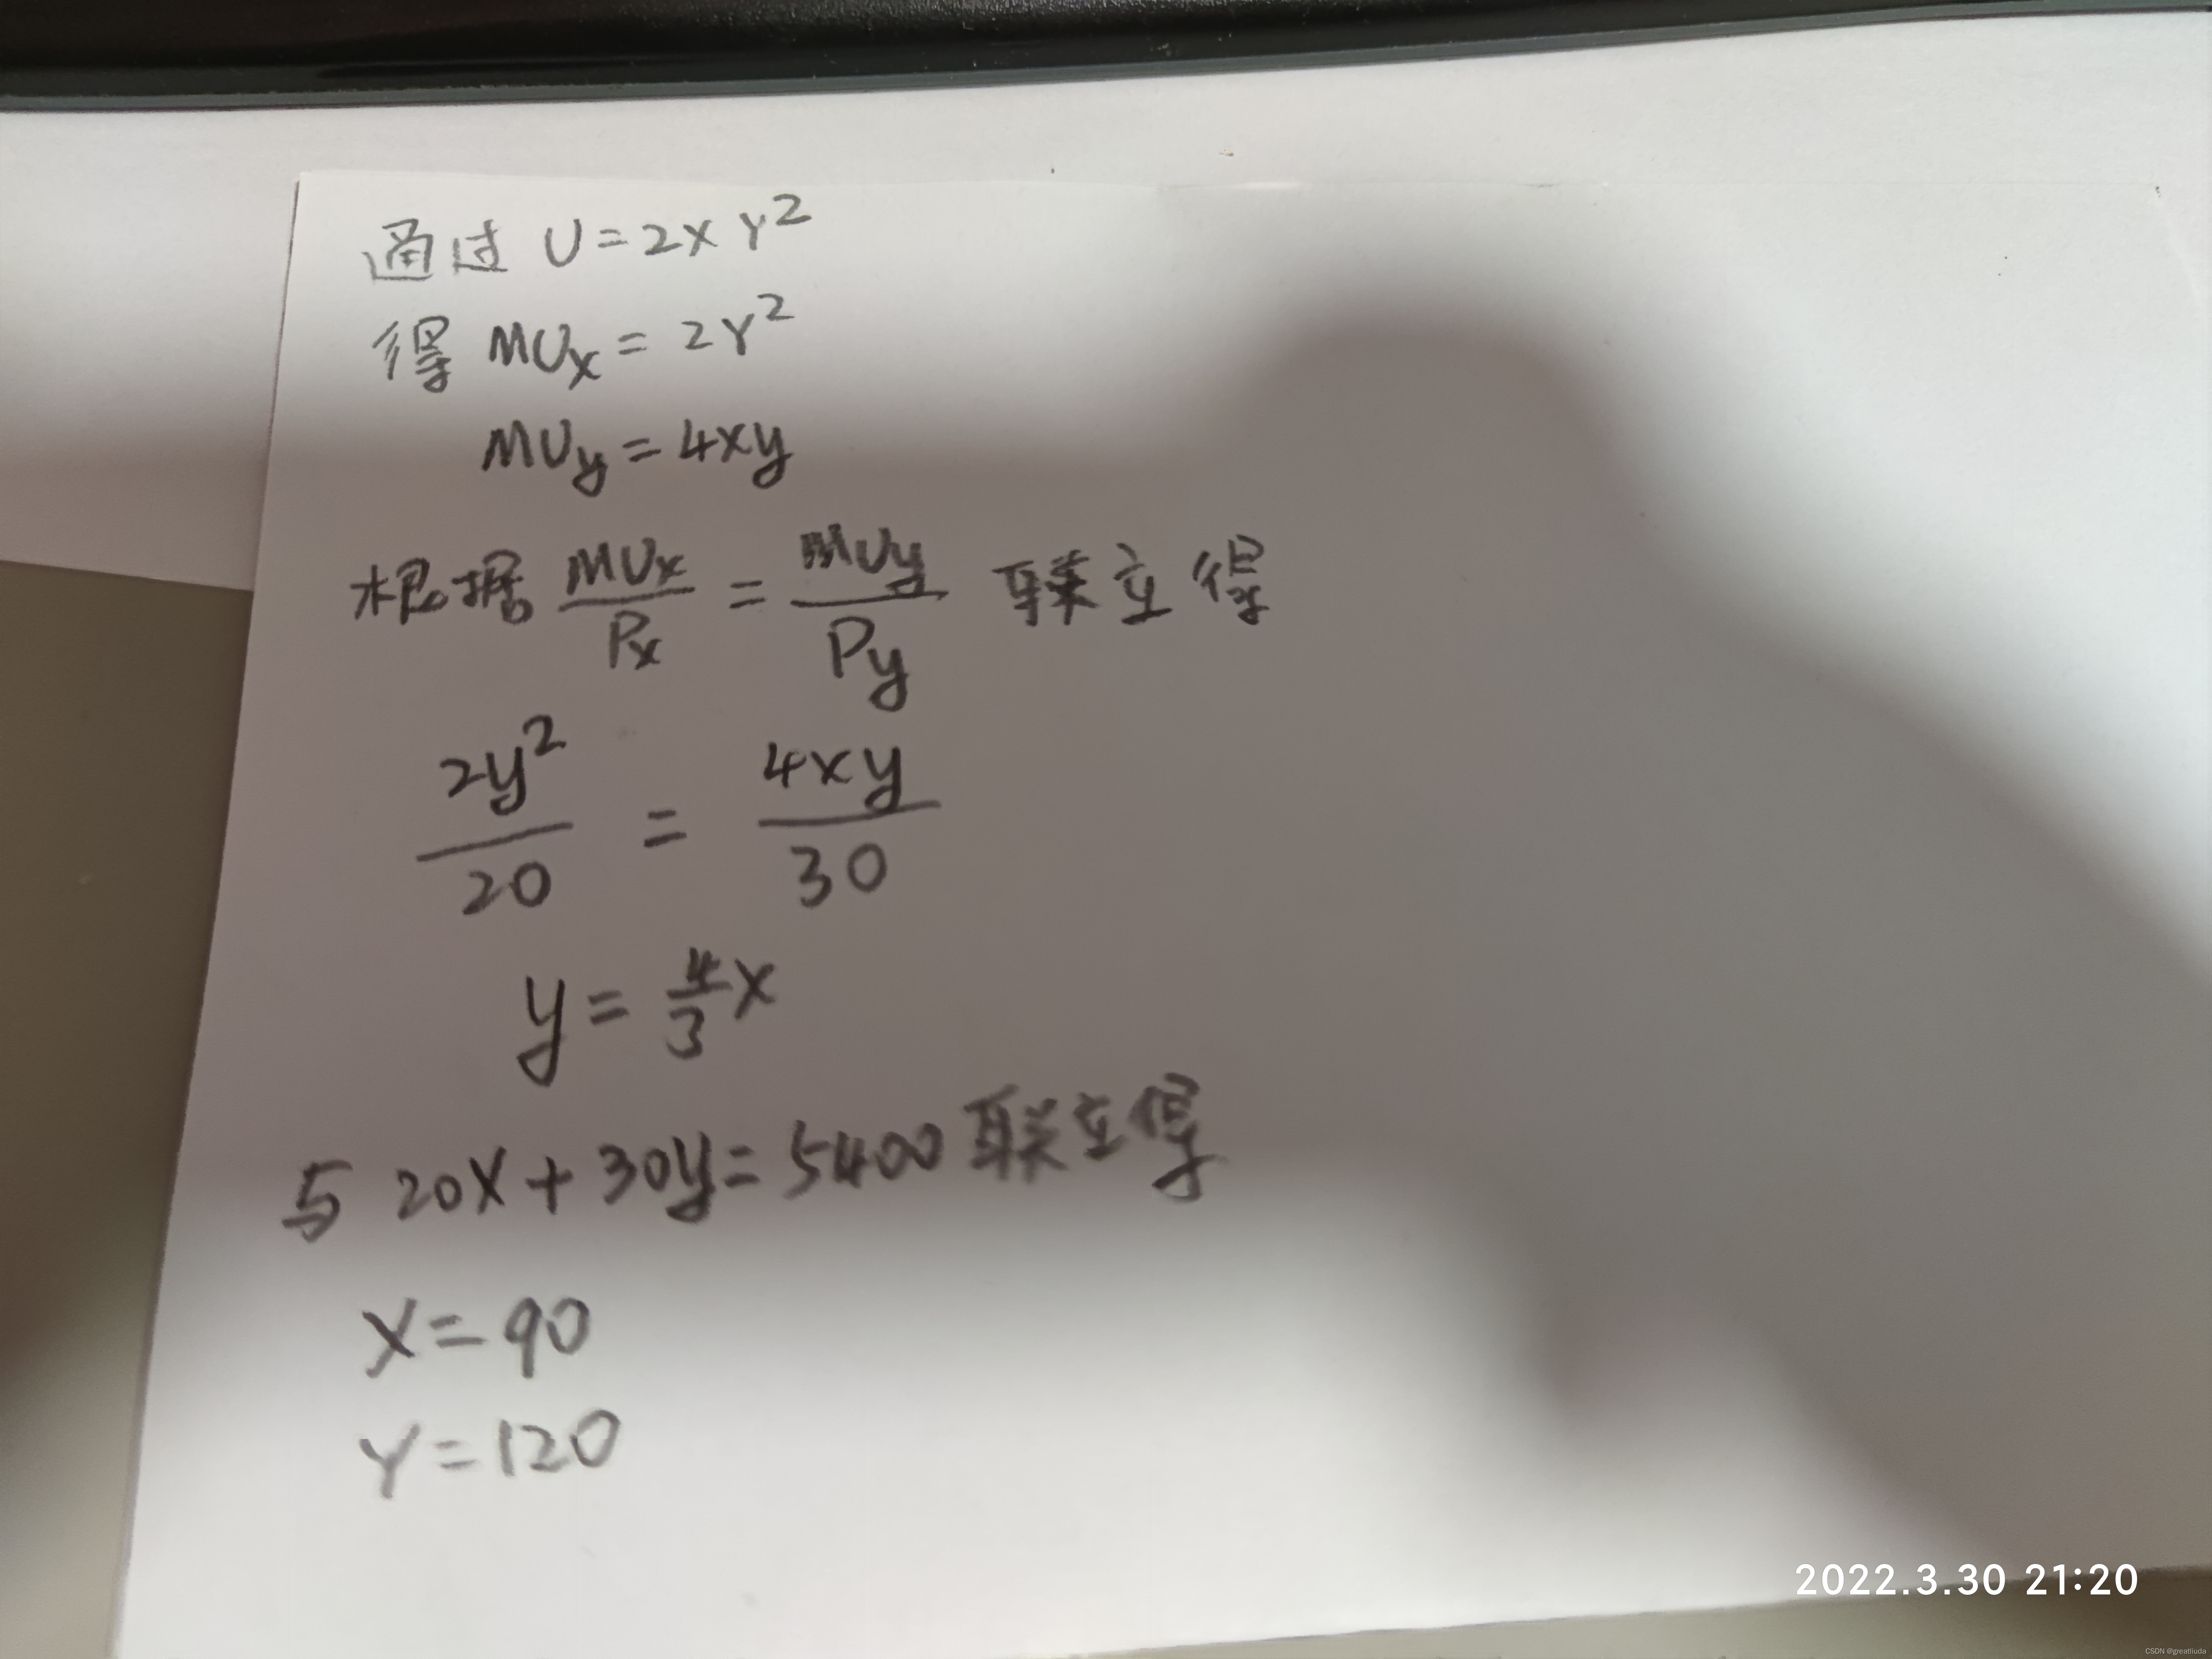 通过 U=2XY²
得 MUx=2Y²
MUy=4xy
根据 MUx/Px = MUy/Py 联立得
2y²/20 = 4xy/30
y=4/3x
与 20X+30y=5400 联立得
X=90
Y=120
2022.3.30 21:20
CSDN @greatliuda